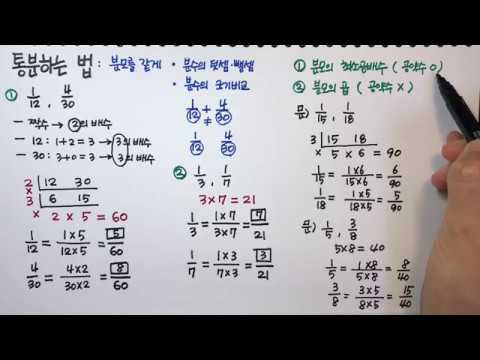 통분하는 법 : 분모를 같게
· 분수의 덧셈·뺄셈
· 분수의 크기비교
① 1/12 , 4/30
— 짝수 → 2의 배수
— 12 : 1+2 = 3 → 3의 배수
— 30 : 3+0 = 3 → 3의 배수
2 ) 12 30
× 3 ) 6 15
× 2 × 5 = 60
1/12 = 1×5/12×5 = 5/60
4/30 = 4×2/30×2 = 8/60
1/12 + 4/30
≠
1/12 4/30
② 1/3 , 1/7
3×7 = 21
1/3 = 1×7/3×7 = 7/21
1/7 = 1×3/7×3 = 3/21
① 분모의 최소공배수 ( 공약수 O )
② 분모의 곱 ( 공약수 X )
문) 1/15 , 1/18
3 ) 15 18
× 5 × 6 = 90
1/15 = 1×6/15×6 = 6/90
1/18 = 1×5/18×5 = 5/90
문) 1/5 , 3/8
5×8 = 40
1/5 = 1×8/5×8 = 8/40
3/8 = 3×5/8×5 = 15/40